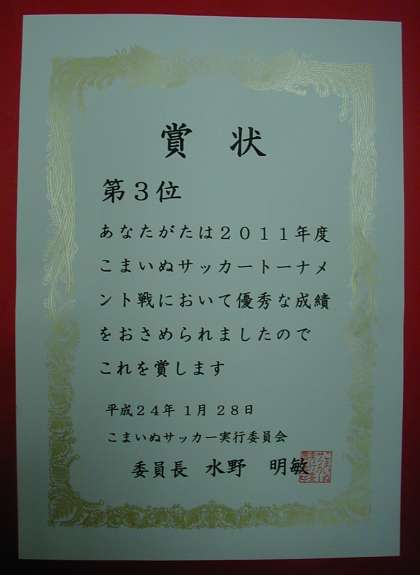 賞状
第３位
あなたがたは２０１１年度
こまいぬサッカートーナメ
ント戦において優秀な成績
をおさめられましたので
これを賞します
平成２４年１月２８日
こまいぬサッカー実行委員会
委員長 水野 明敏